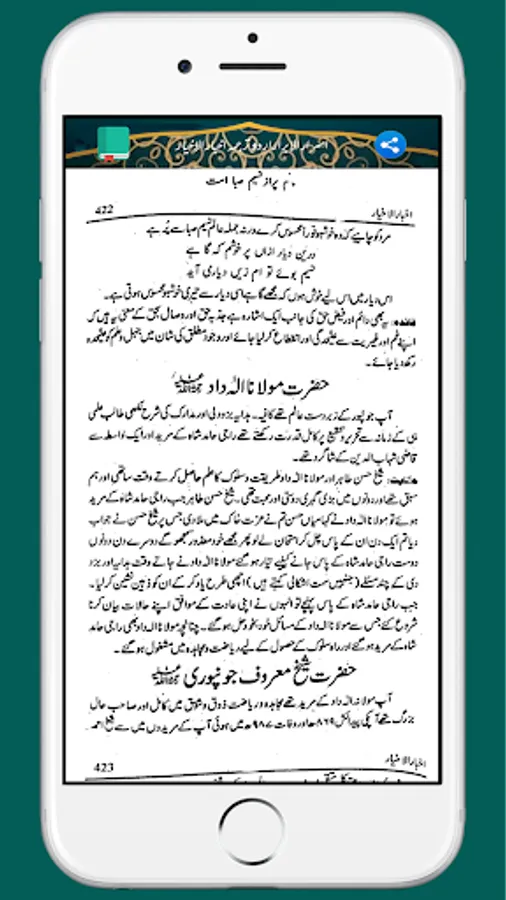 پر از نسیم صبا است
اخبار الاخیار
422
مرد کو چاہیے کہ وہ خوشبو خود محسوس کرے ورنہ جملہ عالم نسیم صبا سے پر ہے
درین دیار ازاں پر خوشم کہ گا ہے
نسیم بوئے تو ام زیں دیاری آید
اس دیار میں اس لیے خوش ہوں کہ مجھے گا ہے اسی دیار سے تیری خوشبو محسوس ہوتی ہے۔
فائدہ: یہ بھی دائم اور فیض حق کی جانب ایک اشارہ ہے جذبہ حق اور وصال حق کے معنی یہ ہیں کہ
اپنے غم اور غیریت سے علیحدگی اور انقطاع کر لیا جائے اور وجود مطلق کی شان میں جہل و علم کو علیحدہ
رکھ دیا جائے۔
حضرت مولانا الہ داد
آپ جونپور کے زبردست عالم تھے کافیہ۔ ہدایہ بزدوی اور مدارک کی شرح لکھی طالب علمی
ہی کے زمانہ سے تحریر و تنقیح پر کامل قدرت رکھتے تھے راجی حامد شاہ کے مرید اور ایک واسطہ سے
قاضی شہاب الدین کے شاگرد تھے۔
حکایت: شیخ حسن طاہر اور مولانا الہ داد طریقت و سلوک کا علم حاصل کرتے وقت ساتھی اور ہم
سبق تھے اور دونوں میں بڑی گہری دوستی اور محبت تھی۔ شیخ حسن طاہر جب راجی حامد شاہ کے مرید
ہوئے تو مولانا الہ داد نے کہا میاں حسن تم نے عزت خاک میں ملا دی جس پر شیخ حسن نے جواب
دیا تم ایک دن ان کے پاس چل کر امتحان لے لو پھر مجھے خود معذور سمجھو گے دوسرے دن دونوں
دوست راجی حامد شاہ کے پاس جانے کیلیے تیار ہو گئے مولانا الہ داد نے جاتے وقت ہدایہ اور بزد
دی کے چند مسئلے (جنہیں ست اشکالی کہتے ہیں) اچھی طرح یاد کر کے ان کو ذہین نشین کر لیا۔
جب راجی حامد شاہ کے پاس پہنچے تو انہوں نے اپنی عادت کے موافق اپنے حالات بیان کرنا
شروع کئے جس سے مولانا الہ داد کے مسائل خود بخود حل ہو گئے۔ چنانچہ مولانا الہ داد بھی راجی حامد
شاہ کے مرید ہو گئے اور راہ سلوک کے حصول کے لیے ریاضت و مجاہدہ میں مشغول ہو گئے۔
حضرت شیخ معروف جونپوری
آپ مولانا الہ داد کے مرید تھے مجاہدہ و ریاضت ذوق و شوق میں کامل اور صاحب حال
بزرگ تھے آپکی پیدائش ۸۶۹ھ اور وفات ۹۸۷ھ میں ہوئی آپ کے مریدوں میں سے شیخ احمد
اخبار الاخیار
423